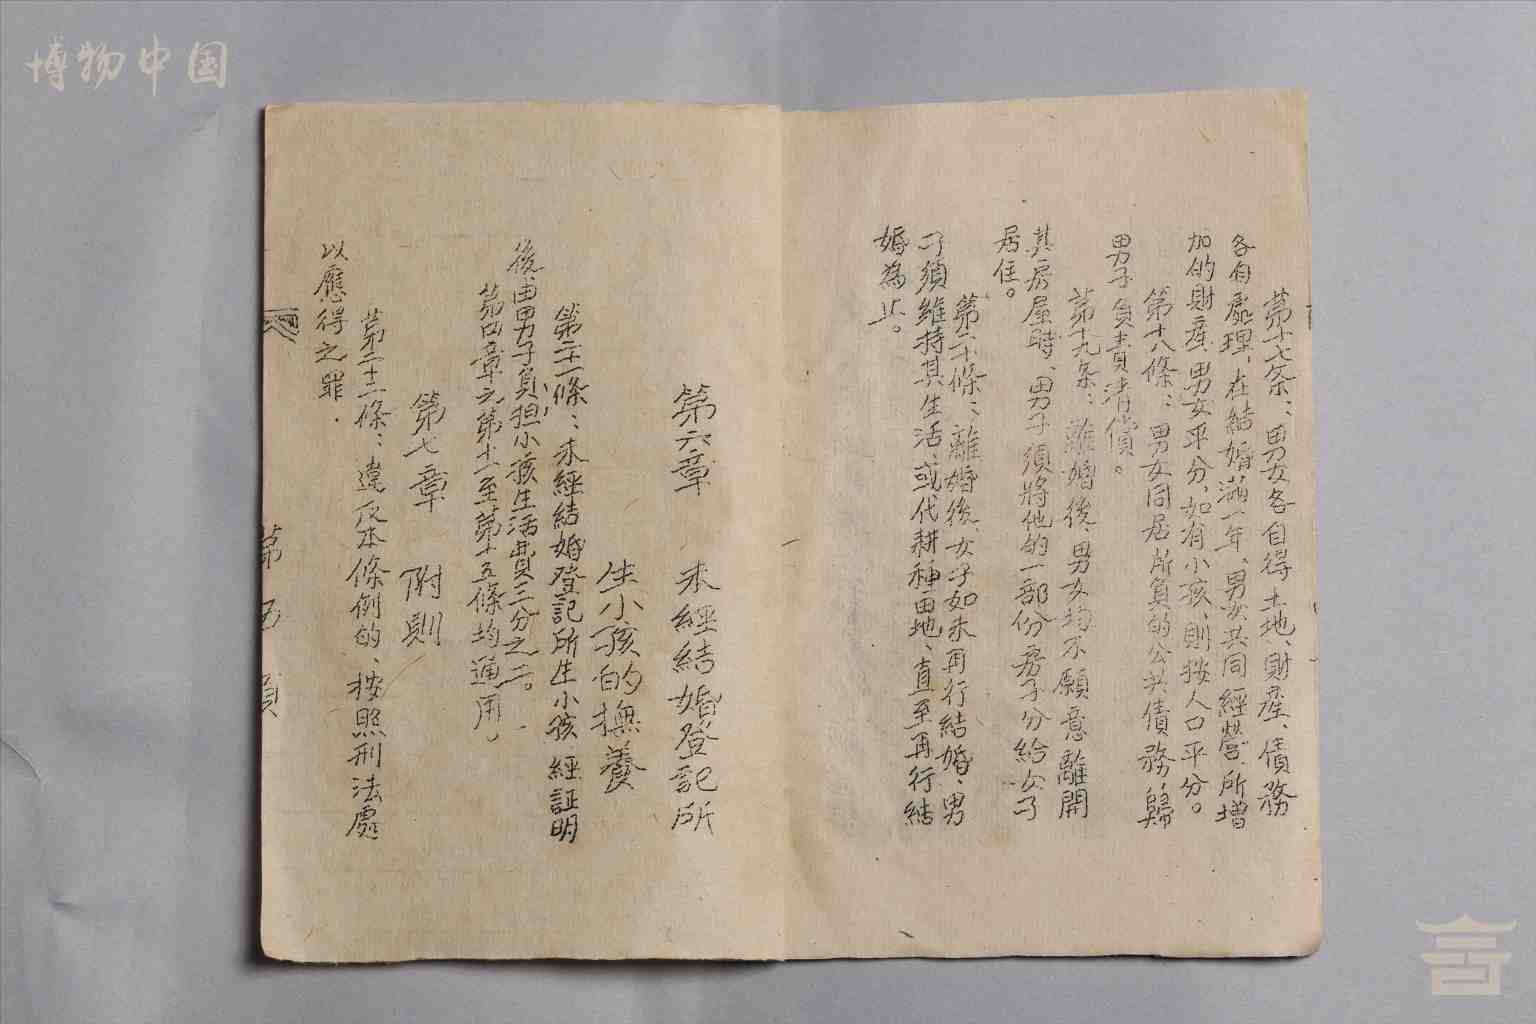 博物中国
第十七条：男女各自得土地、財産、債務
各自處理，在結婚滿一年，男女共同經營所增
加的財產，男女平分，如有小孩，則按人口平分。
第十八條：男女同居所負的公共債務，歸
男子負責清償。
第十九条：離婚後，男女均不願意離開
其房屋時，男子須將他的一部份房子分給女子
居住。
第二十條：離婚後，女子如未再行結婚，男
子須維持其生活，或代耕種田地，直至再行結
婚為止。
第六章　未經結婚登記所
生小孩的撫養
第廿一條：未經結婚登記所生小孩經証明
後，由男子負担小孩生活費三分之二。
第四章之第十一至第十五條均適用。
第七章　附則
第二十二條：違反本條例的、按照刑法處
以應得之罪．
第五頁